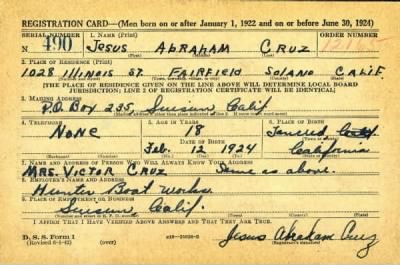 REGISTRATION CARD—(Men born on or after January 1, 1922 and on or before June 30, 1924)
SERIAL NUMBER 1. NAME (Print) ORDER NUMBER
N 490 JESUS ABRAHAM CRUZ
2. PLACE OF RESIDENCE (Print)
1028 ILLINOIS ST. FAIRFIELD SOLANO CALIF.
[THE PLACE OF RESIDENCE GIVEN ON THE LINE ABOVE WILL DETERMINE LOCAL BOARD
JURISDICTION; LINE 2 OF REGISTRATION CERTIFICATE WILL BE IDENTICAL]
3. MAILING ADDRESS
P.O. Box 235, Suisun Calif
4. TELEPHONE 5. AGE IN YEARS 6. PLACE OF BIRTH
NONE 18
DATE OF BIRTH
Feb. 12 1924 California
7. NAME AND ADDRESS OF PERSON WHO WILL ALWAYS KNOW YOUR ADDRESS
MRS. VICTOR CRUZ Same as above.
8. EMPLOYER'S NAME AND ADDRESS
Hunter Boat Works
9. PLACE OF EMPLOYMENT OR BUSINESS
Suisun Calif.
I AFFIRM THAT I HAVE VERIFIED ABOVE ANSWERS AND THAT THEY ARE TRUE.
D. S. S. Form 1
(Revised 6-1-42)
Jesus Abraham Cruz
(Registrant's signature)